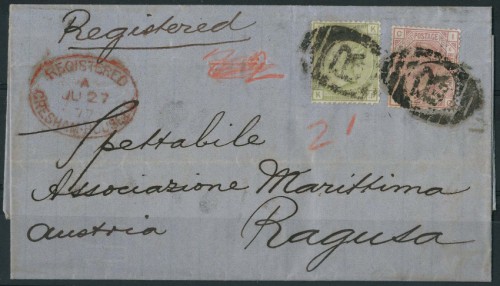 Registered
REGISTERED
A
JU 27
GRESHAM HOUSE
POSTAGE
21
Spettabile
Associazione Marittima
Austria Ragusa